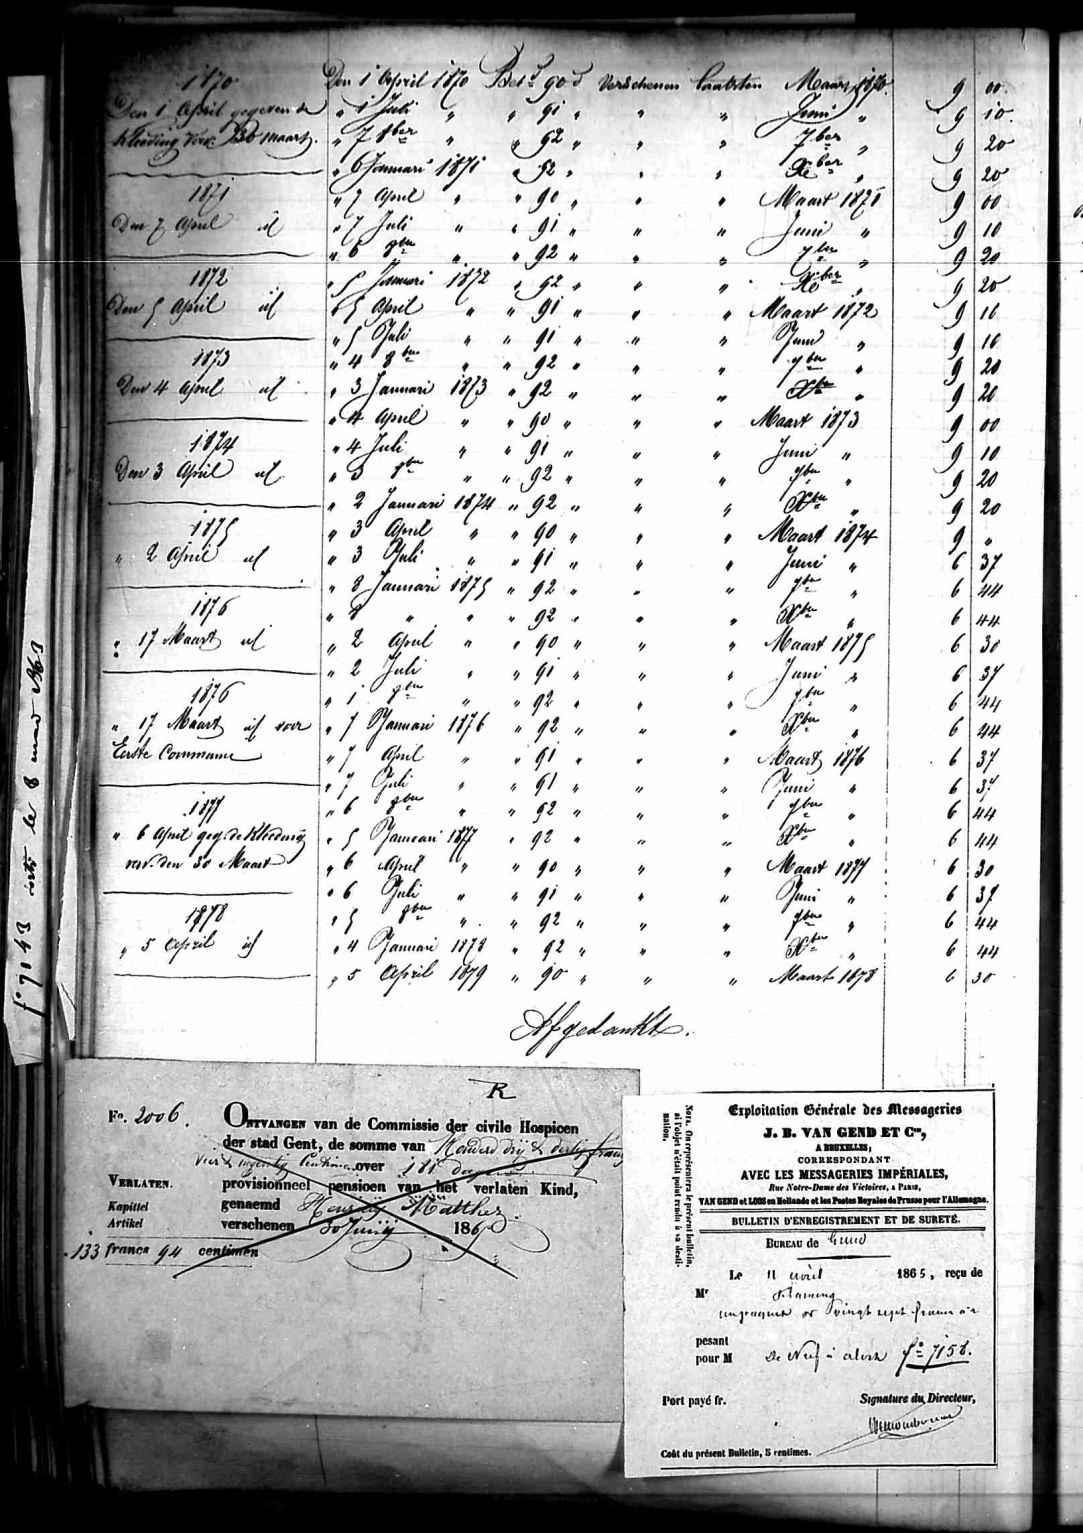 1870
Den 1 April gegeven de
kleeding verv. 30 maart.
1871
Den 7 April id
1872
Den 5 April id
1873
Den 4 April id
1874
Den 3 April id
1875
" 2 April id
1876
" 17 Maart id
1876
" 17 Maart id voor
Eerste Communie
1877
" 6 April geg. de kleeding
verv. den 30 Maart
1878
" 5 April id
Den 1 April 1870 Bet. 90 d verschenen Maart 1870. 9 00
" 1 Juli " " 91 " " " Juni " 9 10
" 7 8ber " " 92 " " " 7ber " 9 20
" 6 Januari 1871 " 92 " " " Xber 9 20
" 7 April " " 90 " " " Maart 1871 9 00
" 7 Juli " " 91 " " " Juni " 9 10
" 6 8ber " " 92 " " " 7ber " 9 20
" 5 Januari 1872 " 92 " " " Xber 9 20
" 5 April " " 91 " " " Maart 1872 9 10
" 5 Juli " " 91 " " " Juni " 9 10
" 4 8ber " " 92 " " " 7ber " 9 20
" 3 Januari 1873 " 92 " " " Xber " 9 20
" 4 April " " 90 " " " Maart 1873 9 00
" 4 Juli " " 91 " " " Juni " 9 10
" 3 8ber " " 92 " " " 7ber " 9 20
" 2 Januari 1874 " 92 " " " Xber " 9 20
" 3 April " " 90 " " " Maart 1874 9 "
" 3 Juli " " 91 " " " Juni " 6 37
" 8 Januari 1875 " 92 " " " 7ber " 6 44
" 8 " " " 92 " " " Xber " 6 44
" 2 April " " 90 " " " Maart 1875 6 30
" 2 Juli " " 91 " " " Juni " 6 37
" 1 8ber " " 92 " " " 7ber " 6 44
" 7 Januari 1876 " 92 " " " Xber " 6 44
" 7 April " " 91 " " " Maart 1876 6 37
" 7 Juli " " 91 " " " Juni " 6 37
" 6 8ber " " 92 " " " 7ber " 6 44
" 5 Januari 1877 " 92 " " " Xber " 6 44
" 6 April " " 90 " " " Maart 1877 6 30
" 6 Juli " " 91 " " " Juni " 6 37
" 5 8ber " " 92 " " " 7ber " 6 44
" 4 Januari 1878 " 92 " " " Xber " 6 44
" 5 April 1879 " 90 " " " Maart 1878 6 30
Afgedankt.
R
Fo. 2006.
ONTVANGEN van de Commissie der civile Hospicen
der stad Gent, de somme van Honderd drij & dertig francs
vier & negentig Centimen over 181 dagen
VERLATEN. provisionneel pensioen van het verlaten Kind,
Kapittel genaemd Matthez
Artikel verschenen 30 Junij 186
133 francs 94 centimen
NOTA. On représentera le présent bulletin,
si l'objet n'était point rendu à sa desti-
nation.
Exploitation Générale des Messageries
J. B. VAN GEND ET Cie,
A BRUXELLES;
CORRESPONDANT
AVEC LES MESSAGERIES IMPÉRIALES,
Rue Notre-Dame des Victoires, A PARIS,
VAN GEND et LOOS en Hollande et les Postes Royales de Prusse pour l'Allemagne.
BULLETIN D'ENREGISTREMENT ET DE SURETÉ.
BUREAU de Gand
Le 11 avril 1865, reçu de
Mr Flamung
vingt sept francs
pesant
pour M De Neef à alost fo 7158.
Port payé fr. Signature du Directeur,
Coût du présent Bulletin, 5 centimes.